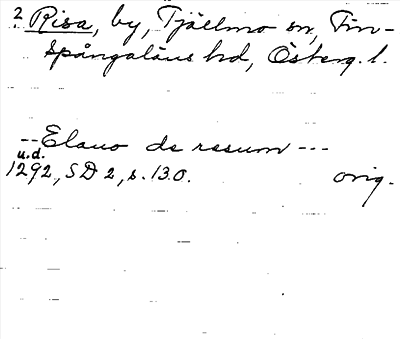 ? Risa, by, Tjällmo sn, Fin-
spångaläns hd, Österg. l.
-- Elauo de rasum ---
u.d.
1292, SD 2, s. 130. orig.